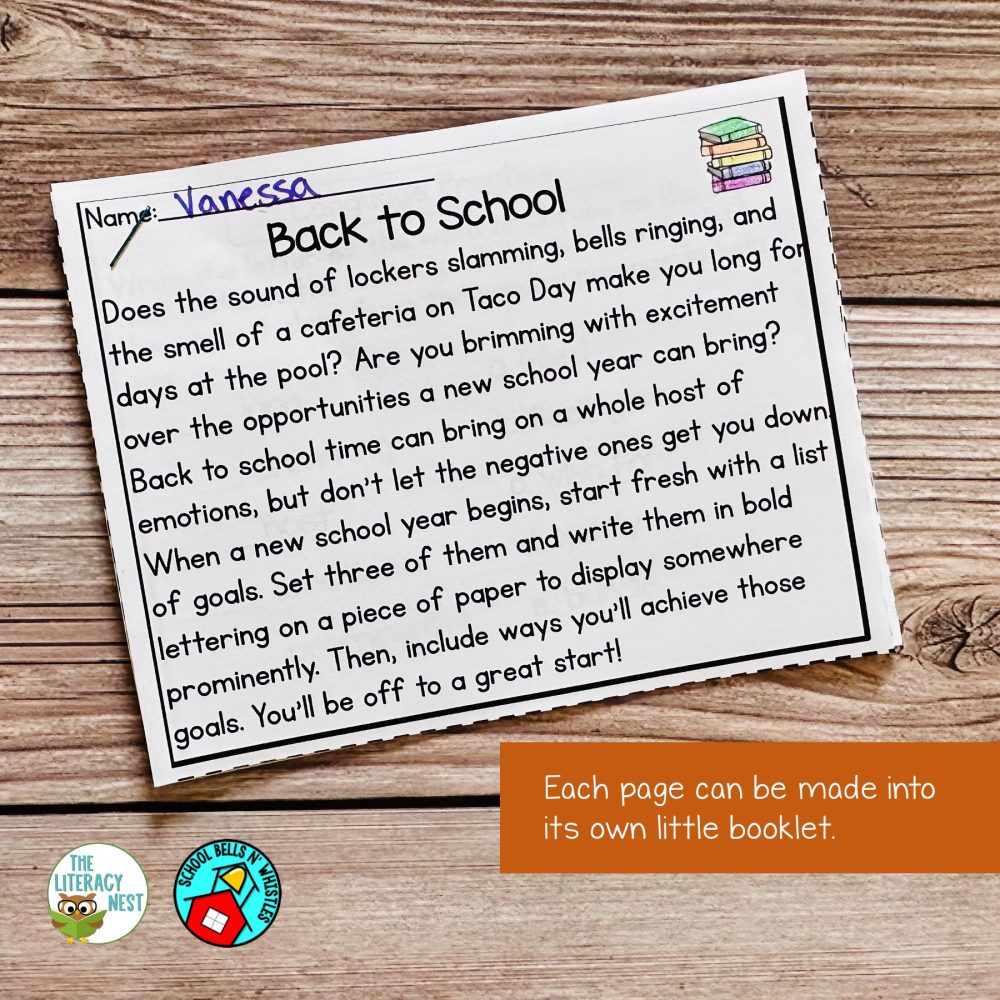 Name: Vanessa
Back to School
Does the sound of lockers slamming, bells ringing, and
the smell of a cafeteria on Taco Day make you long for
days at the pool? Are you brimming with excitement
over the opportunities a new school year can bring?
Back to school time can bring on a whole host of
emotions, but don't let the negative ones get you down.
When a new school year begins, start fresh with a list
of goals. Set three of them and write them in bold
lettering on a piece of paper to display somewhere
prominently. Then, include ways you'll achieve those
goals. You'll be off to a great start!
Each page can be made into
its own little booklet.
THE
LITERACY
NEST
SCHOOL BELLS N' WHISTLES